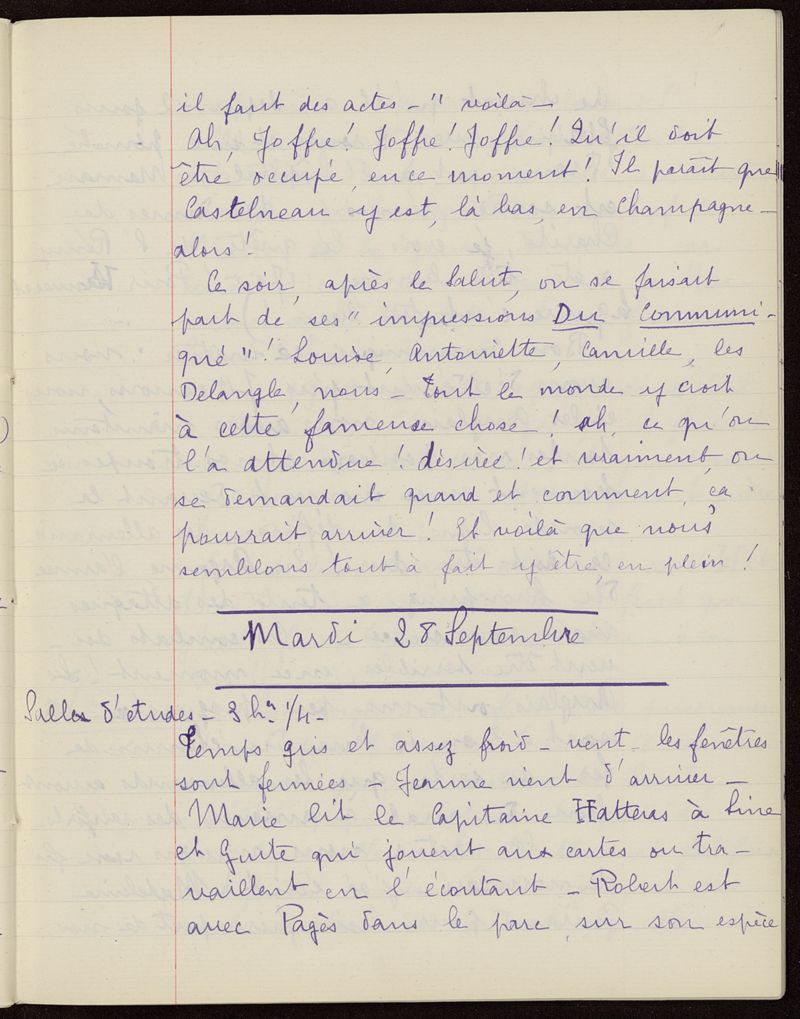 il faut des actes – " voilà –
Ah, Joffre ! Joffre ! Joffre ! Qu'il doit
être occupé, en ce moment ! Il paraît que
Castelneau y est, là bas, en Champagne –
alors !
Ce soir, après le Salut, on se faisait
part de ses " impressions Du Communi-
qué " ! Louise, Antoinette, Camille, les
Delangle, nous – tout le monde y croit
à cette fameuse chose ! ah, ce qu'on
l'a attendue ! désirée ! et vraiment, on
se demandait quand et comment, ça
pourrait arriver ! Et voilà que nous
semblons tout à fait y être, en plein !
Mardi 28 Septembre
Salles d'etudes – 3 h. 1/4 –
Temps gris et assez froid – vent – les fenêtres
sont fermées – Jeanne vient d'arriver –
Marie lit le Capitaine Hatteras à Line
et Guite qui jouent aux cartes ou tra-
vaillent en l'écoutant – Robert est
avec Pagès dans le parc, sur son espèce